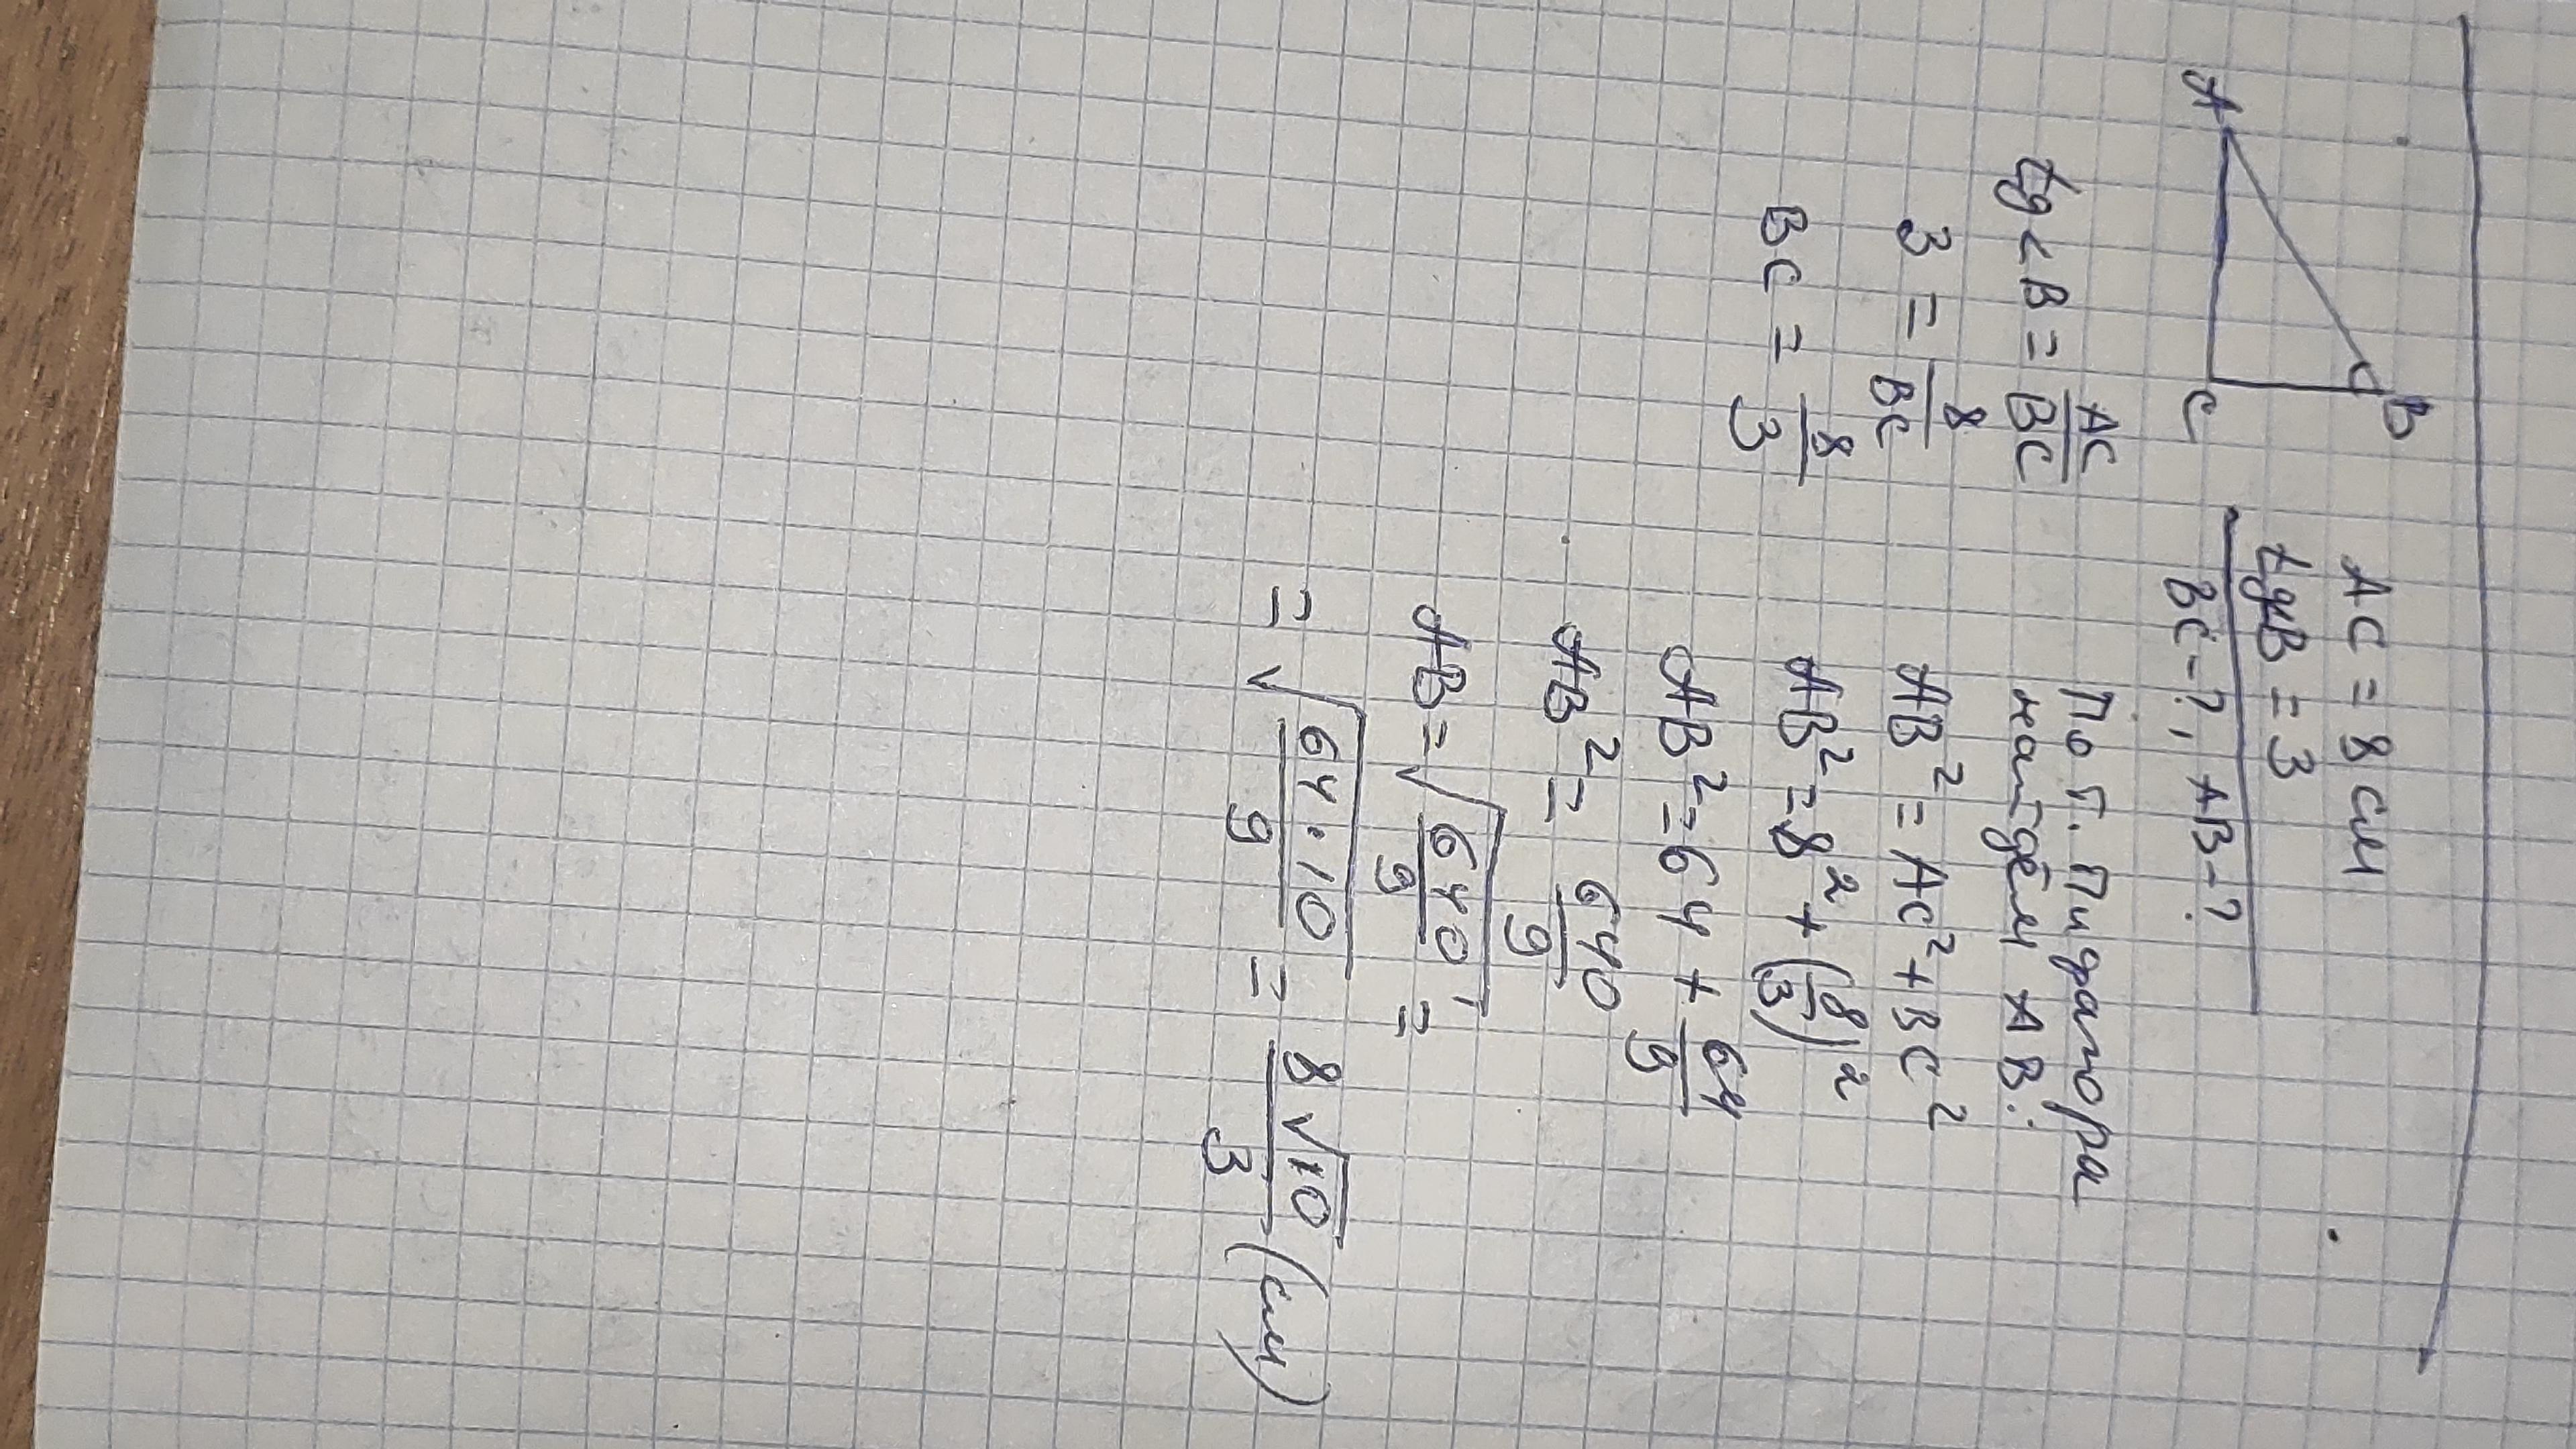 B
A
C
AC = 8 см
tgB = 3
BC-?, AB-?
tg<B = AC/BC
3 = 8/BC
BC = 8/3
По т. Пифагора
найдём AB:
AB² = AC² + BC²
AB² = 8² + (8/3)²
AB² = 64 + 64/9
AB² = 640/9
AB = √(640/9) =
= √(64·10/9) = 8√10/3 (см)